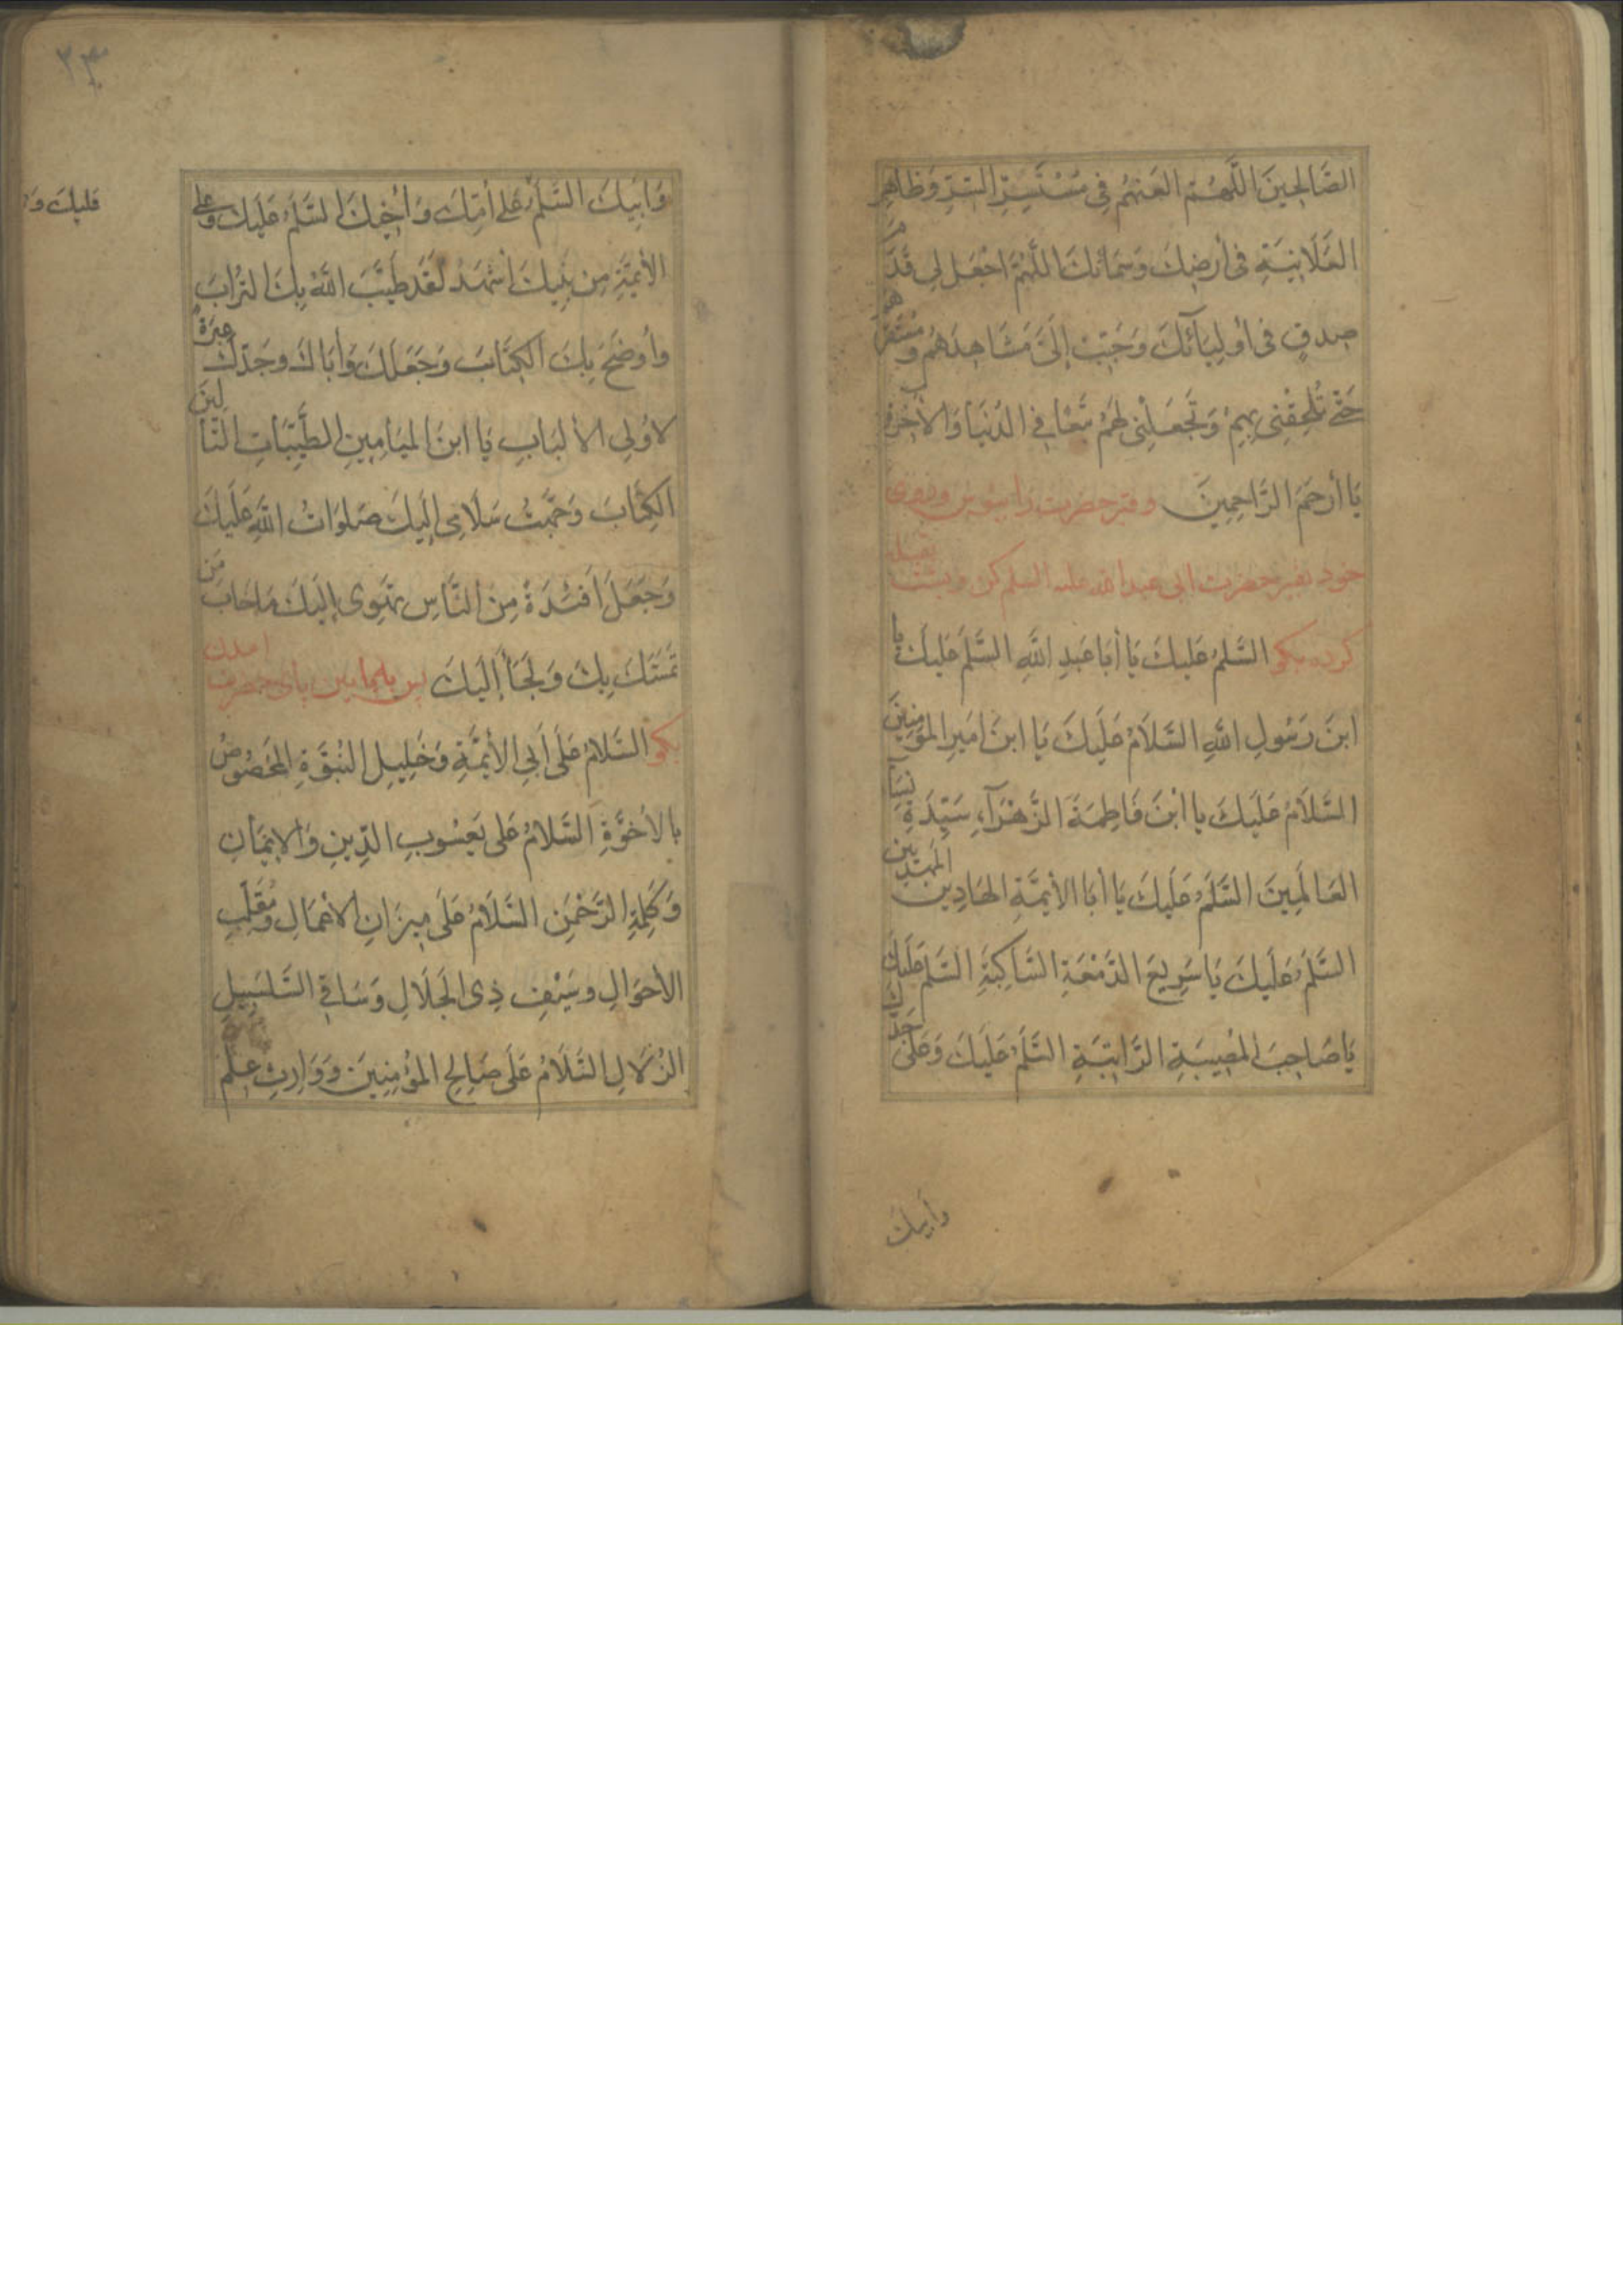 الصَّالِحِينَ اللَّهُمَّ العَنهُم فِي مُسْتَسِرِّ السِّرِّ وَظَاهِرِ
العَلَانِيَةِ فِي أَرضِكَ وَسَمَائِكَ اللَّهُمَّ اجْعَل لِي قَدَمَ
صِدقٍ فِي أَولِيَآئِكَ وَحَبِّبْ إِلَيَّ مَشَاهِدَهُم وَمُسْتَقَرَّهُم
حَتَّى تُلْحِقَنِي بِهِم وَتَجْعَلَنِي لَهُم تَبَعًا فِي الدُّنيَا وَالآخِرَةِ
يَا أَرحَمَ الرَّاحِمِينَ وقبر حضرت را ببوس و
خود بقبر حضرت ابى عبد الله عليه السلم كن وپشت بقبله
كرده بگو السَّلَمُ عَلَيكَ يَا أَبَا عَبدِ اللَّهِ السَّلَمُ عَلَيكَ يا
ابنَ رَسُولِ اللَّهِ السَّلَامُ عَلَيكَ يَا ابنَ امَيرِ المؤمِنِينَ
السَّلَامُ عَلَيكَ يا ابْنَ فَاطِمَةَ الزَّهْرَآءِ سَيِّدَةِ نِسَآءِ
العَالَمِينَ السَّلَمُ عَلَيكَ يَا أَبَا الأَئِمَّةِ الهَادِينَ المَهدِيِّينَ
السَّلَمُ عَلَيكَ يَا سَرِيعَ الدَّمْعَةِ السَّاكِبَةِ السَّلَمُ عَلَيكَ
يَا صَاحِبَ المُصِيبَةِ الرَّاتِبَةِ السَّلَمُ عَلَيكَ وَعَلَى جَدِّكَ
وأبيك
٢٣
وَأَبِيكَ السَّلَمُ عَلَى أُمِّكَ وَأَخِيكَ السَّلَمُ عَلَيكَ وَعَلى
الأَئِمَّةِ مِن بَنِيكَ أَشْهَدُ لَقَد طَيَّبَ اللَّهُ بِكَ التُرَابَ
وأَوضَحَ بِكَ الكِتَابَ وَجَعَلَكَ وَأَبَاكَ وجَدَّكَ عِبرَةً
لاُولِي الألبَابِ يَا ابنَ الميَامِينِ الطَّيِّبَاتِ التَّالِينَ
الكِتَابَ وَجَّهتُ سَلَامِي إِلَيكَ صَلَوَاتُ اللَّهِ عَلَيكَ
وَجَعَلَ أَفئِدَةً مِنَ النَّاسِ تَهْوِى إِلَيكَ مَاخَابَ مَن
تَمَسَّكَ بِكَ وَلَجَأَ إِلَيكَ پس بيا پايين پاى حضرت
بگو السَّلَامُ عَلَى أَبِي الأَئِمَّةِ وَخَلِيلِ النُبُوَّةِ المَخصُوصِ
بالأُخُوَّةِ السَّلامُ عَلى يَعسُوبِ الدِّينِ وَالايمَانِ
وَكَلِمَةِ الرَّحْمَنِ السَّلَامُ عَلَى مِيزَانِ الأَعْمَالِ وَمُقَلِّبِ
الأَحوَالِ وسَيْفِ ذِى الجَلَالِ وَسَاقِي السَّلسَبِيلِ
الزُلَالِ السَّلَامُ عَلَى صَالِحِ المُؤمِنِينَ وَوَارِثِ عِلْمِ